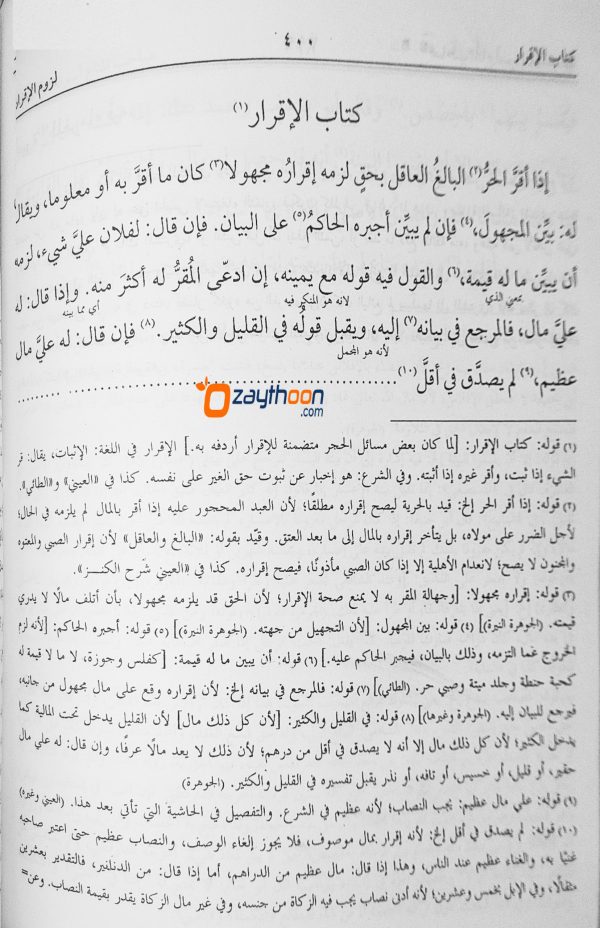 كتاب الإقرار
٤٠٠
لزوم الإقرار
كتاب الإقرار (١)
إذا أقرَّ الحرُّ(٢) البالغُ العاقل بحقٍ لزمه إقرارُه مجهولا(٣) كان ما أقرَّ به أو معلوما، ويقال
له: بيِّن المجهولَ،(٤) فإن لم يبيِّن أجبره الحاكمُ(٥) على البيان. فإن قال: لفلان عليَّ شيء، لزمه
أن يبيِّن ما له قيمة،(٦) والقول فيه قوله مع يمينه، إن ادعّى المُقرُّ له أكثرَ منه. وإذا قال: له
بمعنى الذي
لأنه هو المنكر فيه
أي مما بينه
عليَّ مال، فالمرجع في بيانه(٧) إليه، ويقبل قولُه في القليل والكثير.(٨) فإن قال: له عليَّ مال
لأنه هو المجمل
عظيم،(٩) لم يصدَّق في أقلَّ(١٠)
zaythoon
.com
(١) قوله: كتاب الإقرار: [لما كان بعض مسائل الحجر متضمنة للإقرار أردفه به.] الإقرار في اللغة: الإثبات، يقال: قر
الشيء إذا ثبت، وأقر غيره إذا أثبته. وفي الشرع: هو إخبار عن ثبوت حق الغير على نفسه. كذا في «العيني» و«الطائي».
(٢) قوله: إذا أقر الحر إلخ: قيد بالحرية ليصح إقراره مطلقًا؛ لأن العبد المحجور عليه إذا أقر بالمال لم يلزمه في الحال؛
لأجل الضرر على مولاه، بل يتأخر إقراره بالمال إلى ما بعد العتق. وقيّد بقوله: «البالغ والعاقل» لأن إقرار الصبي والمعتوه
والمجنون لا يصح؛ لانعدام الأهلية إلا إذا كان الصبي مأذونًا، فيصح إقراره. كذا في «العيني شَرح الكنـز».
(٣) قوله: إقراره مجهولا: [وجهالة المقر به لا يمنع صحة الإقرار؛ لأن الحق قد يلزمه مجهولا، بأن أتلف مالًا لا يدري
قيمته. (الجوهرة النيرة)] (٤) قوله: بين المجهول: [لأن التجهيل من جهته. (الجوهرة النيرة)] (٥) قوله: أجبره الحاكم: [لأنه لزم
الخروج عما التزمه، وذلك بالبيان، فيجبر الحاكم عليه.] (٦) قوله: أن يبين ما له قيمة: [كفلس وجوزة، لا ما لا قيمة له
كحبة حنطة وجلد ميتة وصبي حر. (الطائي)] (٧) قوله: فالمرجع في بيانه إلخ: لأن إقراره وقع على مال مجهول من جانبه،
فيرجع للبيان إليه. (الجوهرة وغيرها)] (٨) قوله: في القليل والكثير: [لأن كل ذلك مال] لأن القليل يدخل تحت المالية كما
يدخل الكثير؛ لأن كل ذلك مال إلا أنه لا يصدق في أقل من درهم؛ لأن ذلك لا يعد مالًا عرفا، وإن قال: له علي مال
حقير، أو قليل، أو خسيس، أو تافه، أو نذر يقبل تفسيره في القليل والكثير. (الجوهرة)
(٩) قوله: علي مال عظيم: يجب النصاب؛ لأنه عظيم في الشرع. والتفصيل في الحاشية التي تأتي بعد هذا. (العيني وغيره)
(١٠) قوله: لم يصدق في أقل إلخ: لأنه إقرار بمال موصوف، فلا يجوز إلغاء الوصف، والنصاب عظيم حتى اعتبر صاحبه
غنيًا به، والغناء عظيم عند الناس، وهذا إذا قال: مال عظيم من الدراهم، أما إذا قال: من الدنانير، فالتقدير بعشرين
مثقالًا، وفي الإبل بخمس وعشرين؛ لأنه أدنى نصاب يجب فيه الزكاة من جنسه، وفي غير مال الزكاة يقدر بقيمة النصاب. وعن=